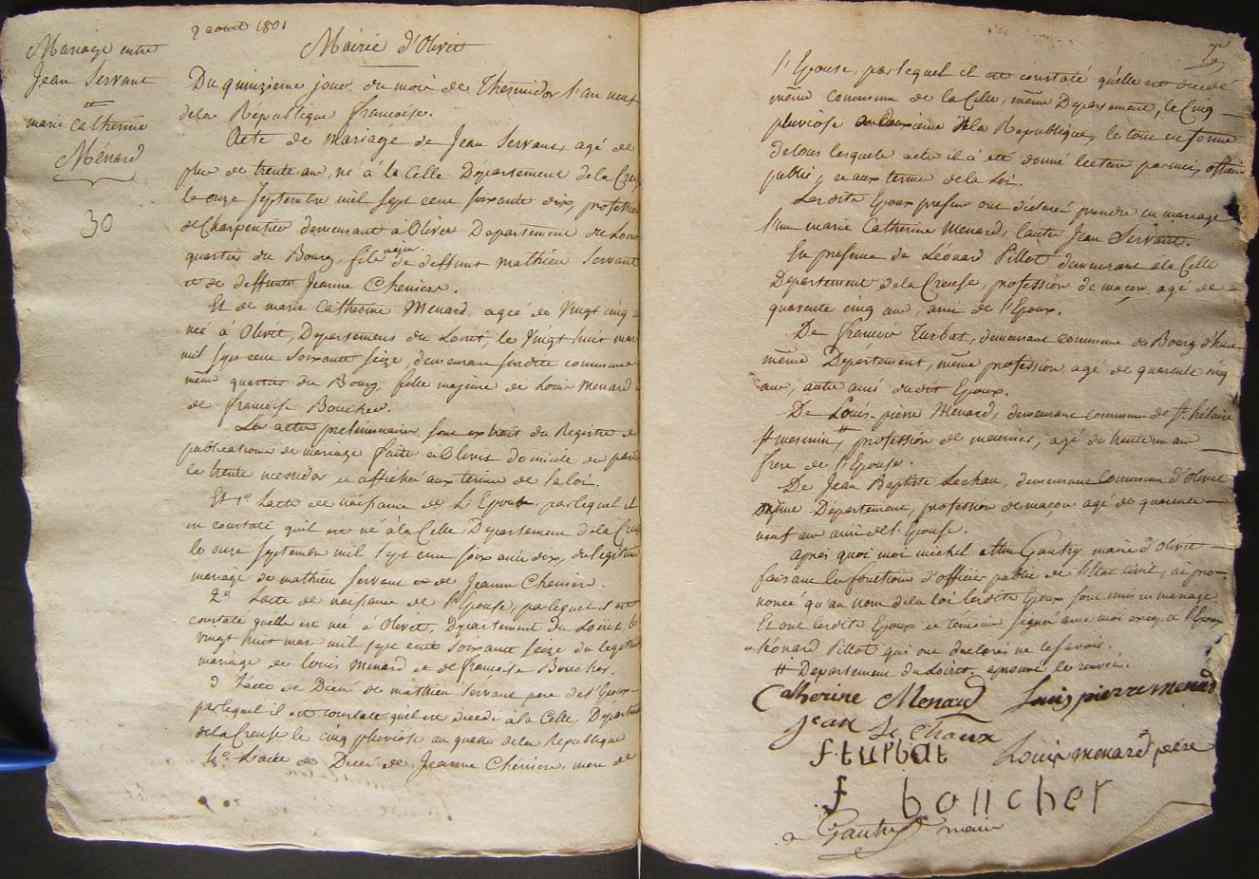 2 aout 1801
Mariage entre
Jean Servant
et
marie Catherine
Ménard
30
Mairie d'Olivet
Du quinzieme jour du mois de Thermidor l'an neuf
de la République francoise.
Acte de mariage de Jean Servant, agé de
plus de trente ans, né à la Celle Département de la Creuse
le onze Septembre mil sept cent soixante dix, profession
de Charpentier demeurant à Olivet Département du Loiret
quartier du Bourg, fils majeur de deffunt Mathieu Servant
et de deffunte Jeanne Cheniere.
Et de marie Catherine Menard, agée de Vingt cinq
née à Olivet, Département du Loiret, le Vingt huit mars
mil sept cent Soixante Seize, demeurant susdite commune
même quartier du Bourg, fille majeure de Louis Menard
de francoise Boucher.
Les actes preliminaires sont extrait du Registre de
publications de mariage faite à Olivet domicile des parties
le trente messidor et affichée aux termes de la loi.
Et 1º L'acte de naissance de L'Epoux par lequel il
est constaté qu'il est né à la Celle Département de la Creuse
le onze Septembre mil sept cent soixante dix, du legitime
mariage de mathieu Servant et de Jeanne Cheniere.
2º L'acte de naissance de l'Epouse, par lequel il est
constaté qu'elle est née à Olivet, Département du Loiret le
vingt huit mars mil sept cent soixante seize du legitime
mariage de louis Menard et de francoise Boucher.
3 L'acte de Décès de mathieu Servant pere de l'Epoux
par lequel il est constaté qu'il est décedé à la Celle Département
de la Creuse le cinq pluviose an quatre de la République
4º L'acte de Décès de Jeanne Chéniere, mere de
l'Epouse, par lequel il est constaté qu'elle est décédé
même commune de la Celle, même Département, le Cinq
pluviose an deuxieme de la Republique, le tout en forme
de tous lesquels actes il à été donné lecture par moi, officier
public, et aux termes de la Loi.
Lesdits Epoux presents ont déclaré prendre en mariage
l'un marie Catherine Menard, l'autre Jean Servant.
En presence de Léonard Pillot demeurant à la Celle
Département de la Creuse, profession de maçon, agé de
quarente cinq ans, ami de l'Epoux.
De francois Turbat, demeurant commune de Bourg d'hem
même Département, même profession, agé de quarente cinq
ans, autre ami dudit Epoux.
De Louis-pierre Menard, demeurant commune de St. hilaire
St mesmin, # profession de meunier, agé de trente un ans
frere de l'Epouse.
De Jean Baptiste Lechau, demeurant commune d'Olivet
même Département, profession de macon agé de quarente
neuf ans ami de l'Epouse.
Après quoi moi michel Gautry, maire d'Olivet
faisant les fonctions d'officier public de l'Etat Civil, ai pro-
noncé qu'au nom de la loi lesdits Epoux sont unis en mariage
Et ont lesdits Epoux et temoins signé avec moi excepté l'Epoux
et Léonard Pillot qui ont declarés ne le savoir.
# Departement du Loiret, approuvé le renvoi.
Catherine Menard Louis pierre menard
Jean Le Chaux
f. turbat Louis menard pere
f boucher
Gautry maire